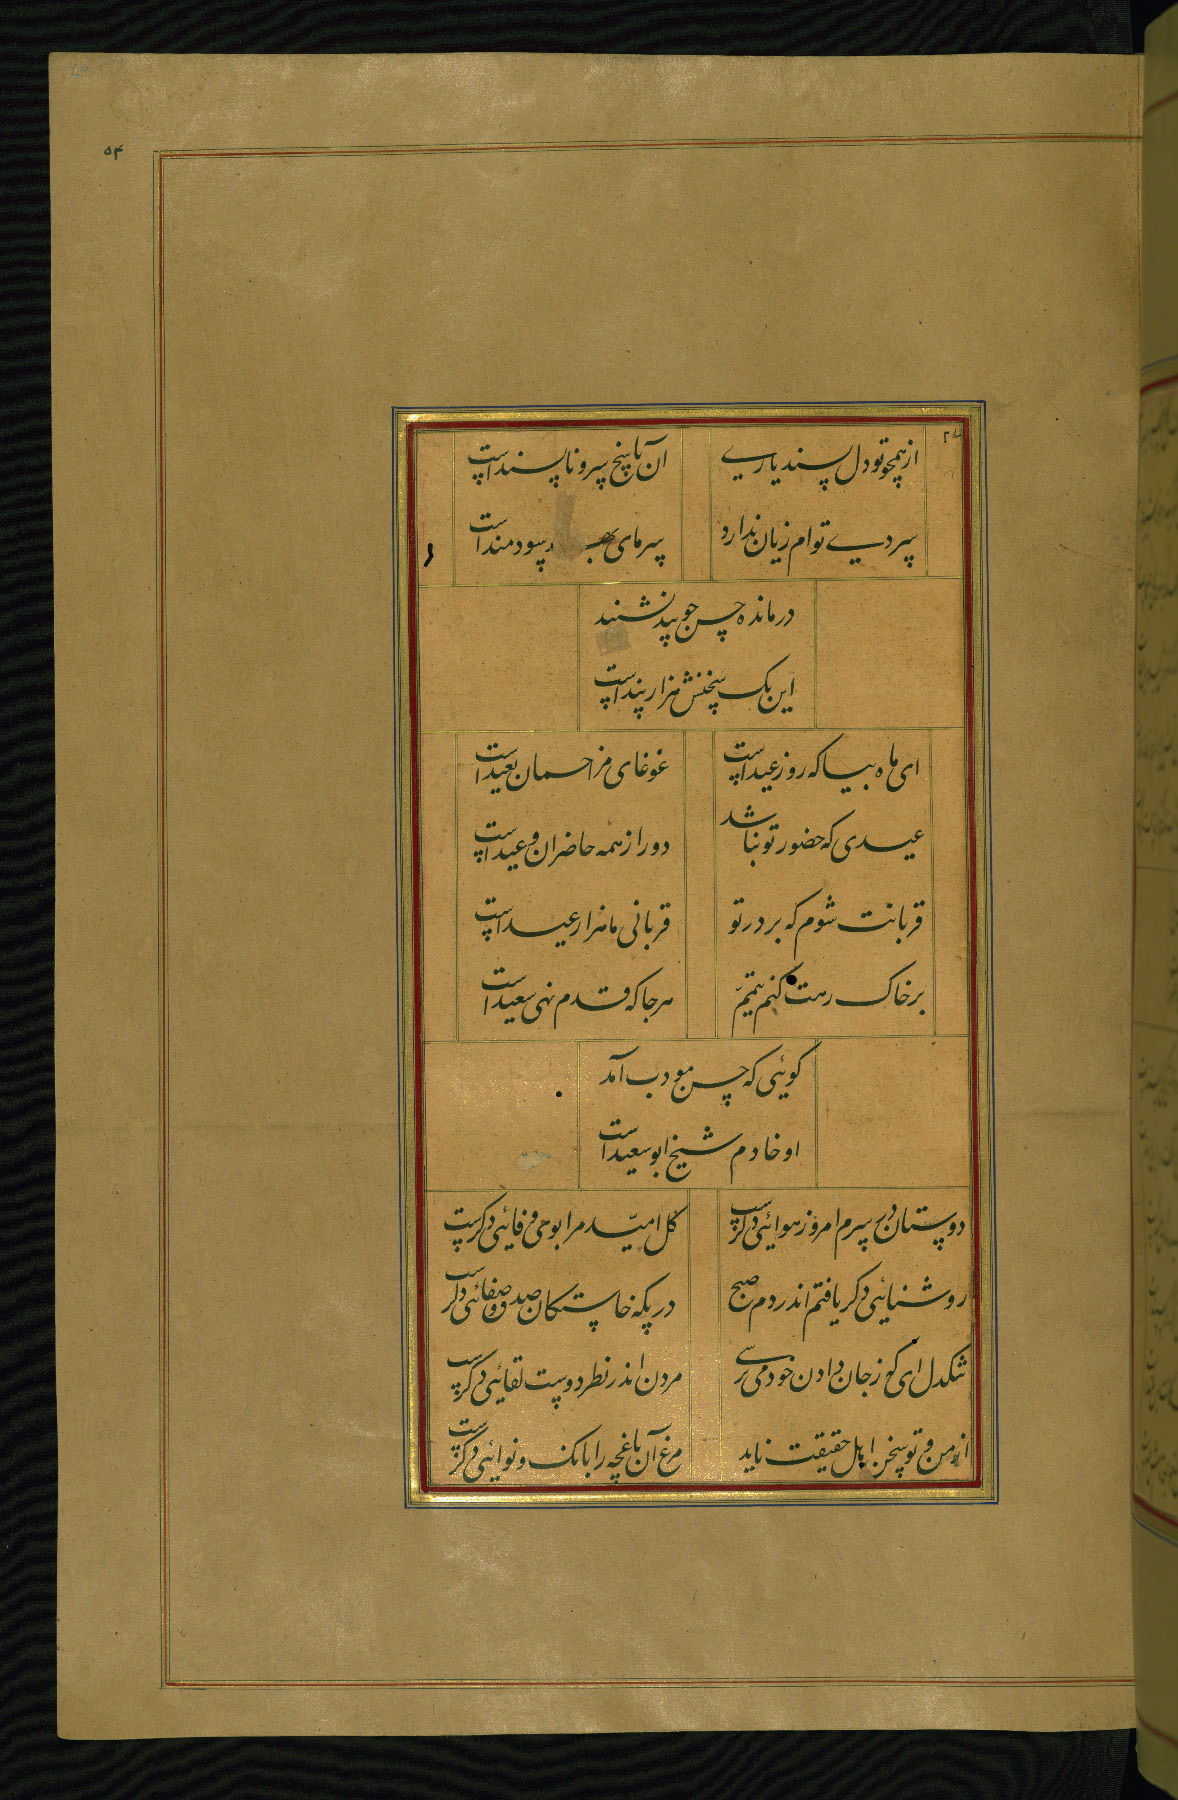 ۵۴
۳۷
از همچو تو دل پسند یاری
آن پاسخ سرو ناپسند است
سردی توام زیان ندارد
سرمای سودمند است
درمانده حسن چو پند نشنید
این یک سخنش هزار پند است
ای ماه بیا که روز عید است
غوغای مزاحمان بعید است
عیدی که حضور تو نباشد
دور از همه حاضران وعید است
قربانت شوم که بر در تو
قربانی ما هزار عید است
بر خاک رهت کنم تیمم
هر جا که قدم نهی سعید است
گوئی که حسن مودب آمد
او خادم شیخ ابو سعید است
دوستان در سرم امروز هوائی دگرست
گل امید مرا بوی وفائی دگرست
روشنائی دگر یافتم اندر دم صبح
خاستگان صدق و صفائی دگرست
سنگدل ای که ز جان دادن خود می ترسی
مردن اندر نظر دوست بقائی دگرست
از من و تو سخن اهل حقیقت ناید
مرغ آن باغچه را بانک و نوائی دگرست